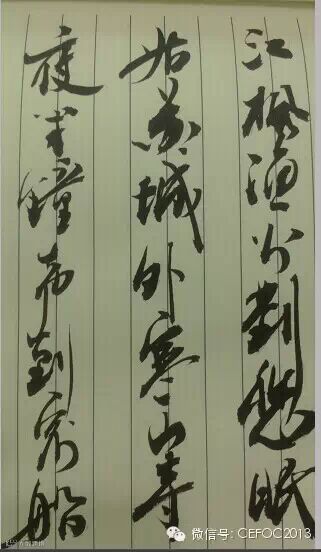 江楓漁火對愁眠
姑蘇城外寒山寺
夜半鐘聲到客船
微信号: CEFOC2013